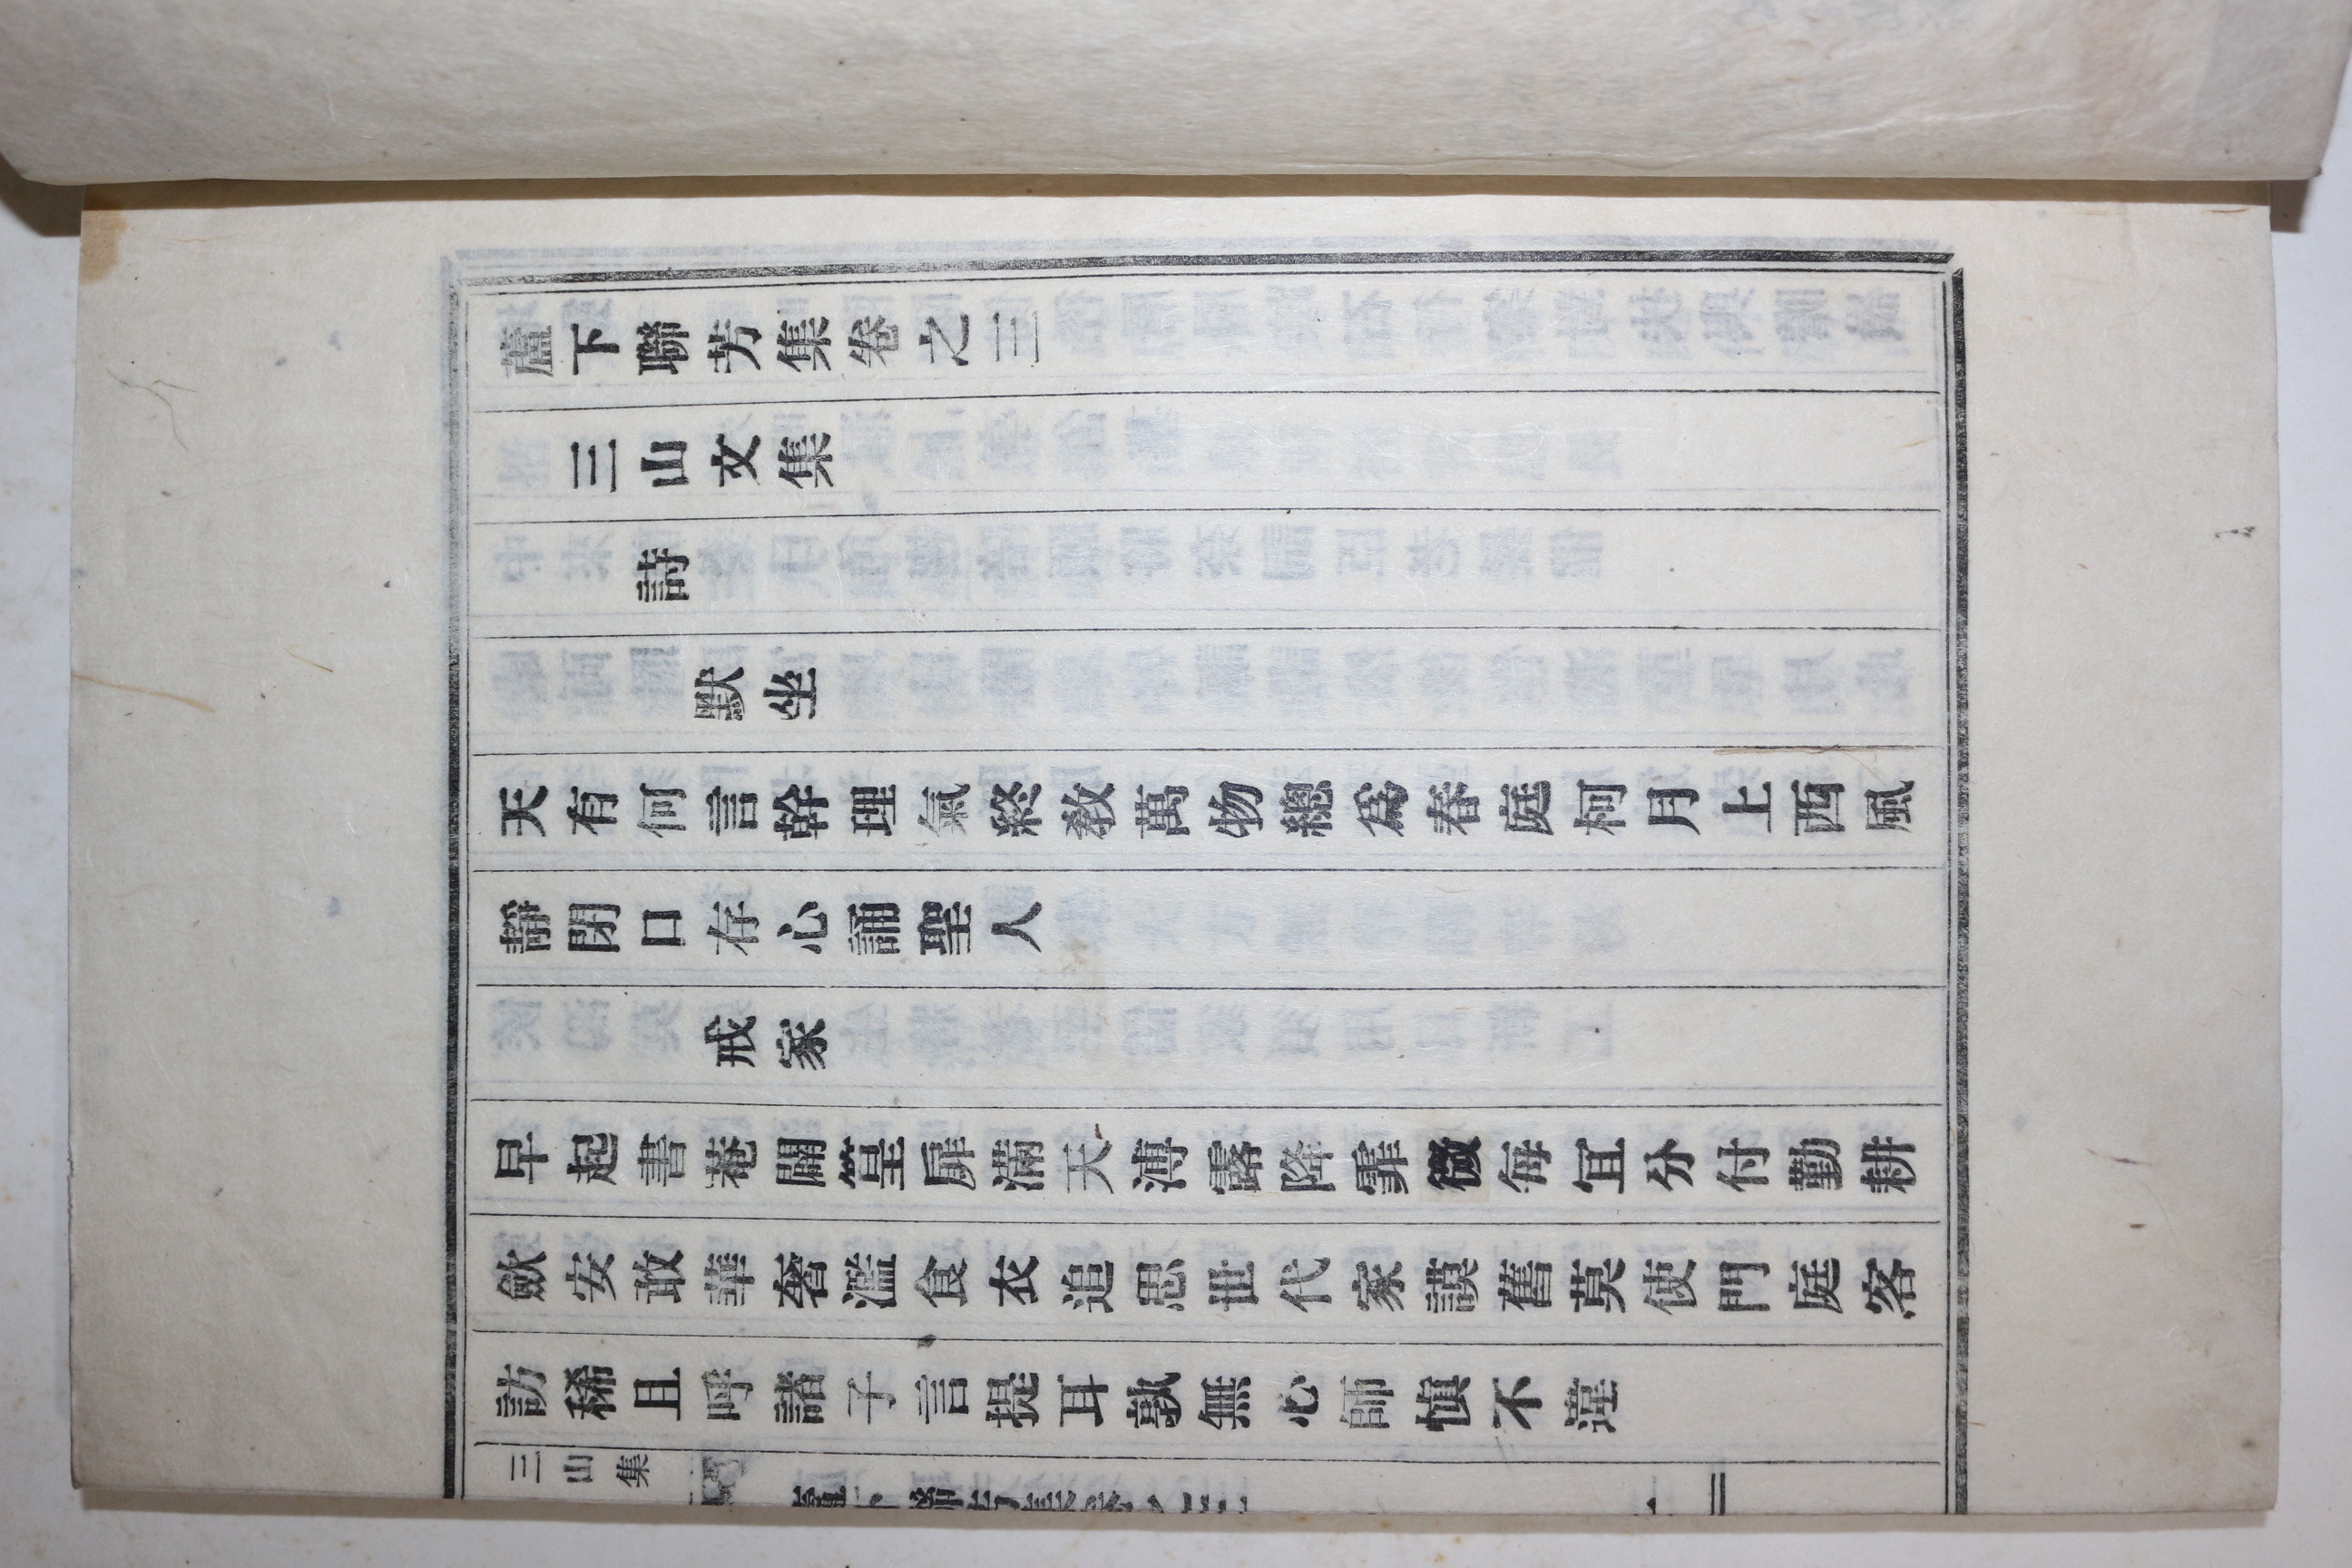 蘆下聯芳集卷之三
三山文集
詩
默坐
天有何言幹理氣終教萬物總爲春庭柯月上西風
靜閉口存心誦聖人
戒家
早起書菴闢篁扉滿天溥露降霏微每宜分付勤耕
歛安敢華奢濫食衣追思世代家謨舊莫使門庭客
訪稀且呼諸子言提耳孰無心師愼不違
三山集